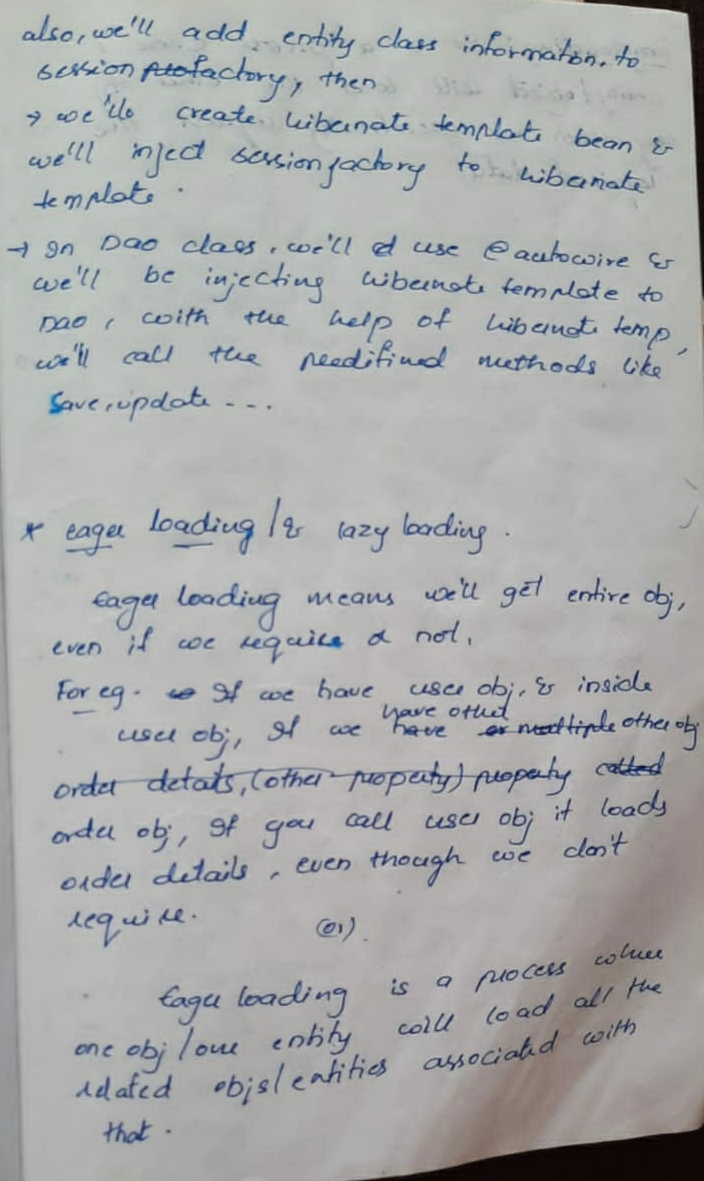 also, we'll add entity class information. to
session factory, then
→ we'll create hibernate template bean &
we'll inject session factory to hibernate
template.
→ In Dao class, we'll use @autowire &
we'll be injecting hibernate template to
Dao, with the help of hibernate temp,
we'll call the predifined methods like
Save, update - - -
* eager loading / & lazy loading.
Eager loading means we'll get entire obj,
even if we require or not.
For eg. If we have user obj, & inside
have other
user obj, If we have or multiple other obj
order details, (other property) property called
order obj, If you call user obj it loads
order details, even though we don't
require.
(or).
Eager loading is a process where
one obj / one entity will load all the
related objs/entities associated with
that.